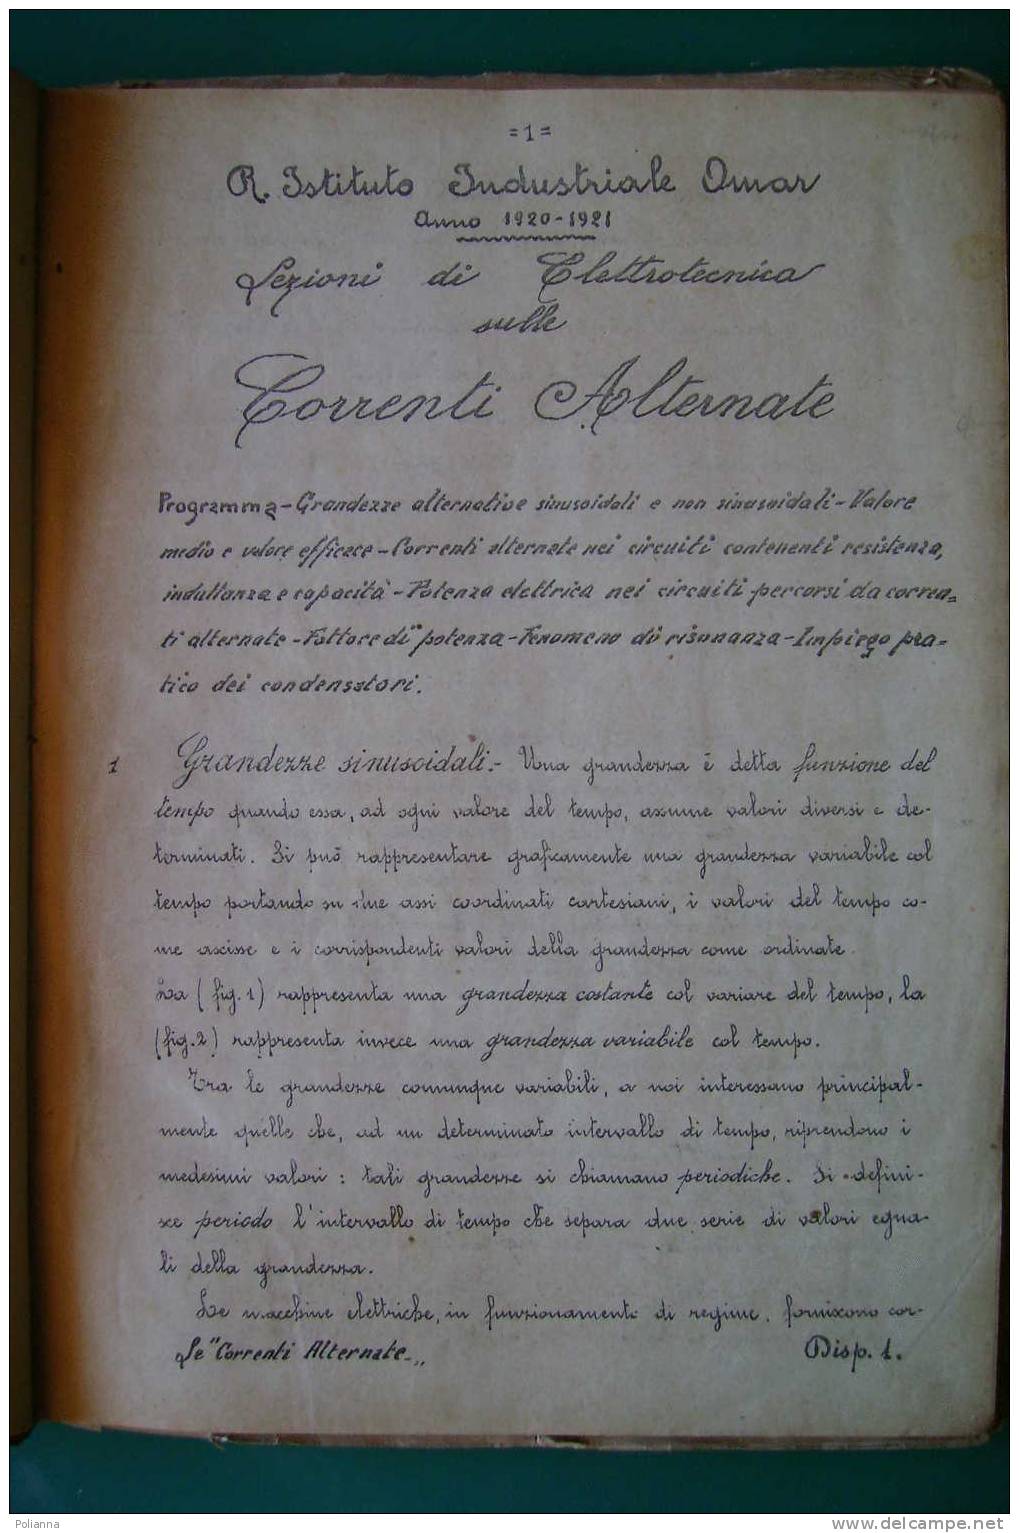 =1=
R. Istituto Industriale Omar
Anno 1920-1921
Lezioni di Elettrotecnica
sulle
Correnti Alternate
Programma - Grandezze alternative sinusoidali e non sinusoidali - Valore
medio e valore efficace - Correnti alternate nei circuiti contenenti resistenza,
induttanza e capacità - Potenza elettrica nei circuiti percorsi da corren=
ti alternate - Fattore di potenza - Fenomeno di risonanza - Impiego pra=
tico dei condensatori.
1 Grandezze sinusoidali.- Una grandezza è detta funzione del
tempo quando essa, ad ogni valore del tempo, assume valori diversi e de-
terminati. Si può rappresentare graficamente una grandezza variabile col
tempo portando su due assi coordinati cartesiani, i valori del tempo co-
me ascisse e i corrispondenti valori della grandezza come ordinate.
La (fig. 1) rappresenta una grandezza costante col variare del tempo, la
(fig. 2) rappresenta invece una grandezza variabile col tempo.
Tra le grandezze comunque variabili, a noi interessano principal-
mente quelle che, ad un determinato intervallo di tempo, riprendono i
medesimi valori: tali grandezze si chiamano periodiche. Si defini-
sce periodo l'intervallo di tempo che separa due serie di valori egua-
li della grandezza.
Le macchine elettriche, in funzionamento di regime, forniscono cor-
Le "Correnti Alternate„ Disp. 1.
Polianna
delcampe.net